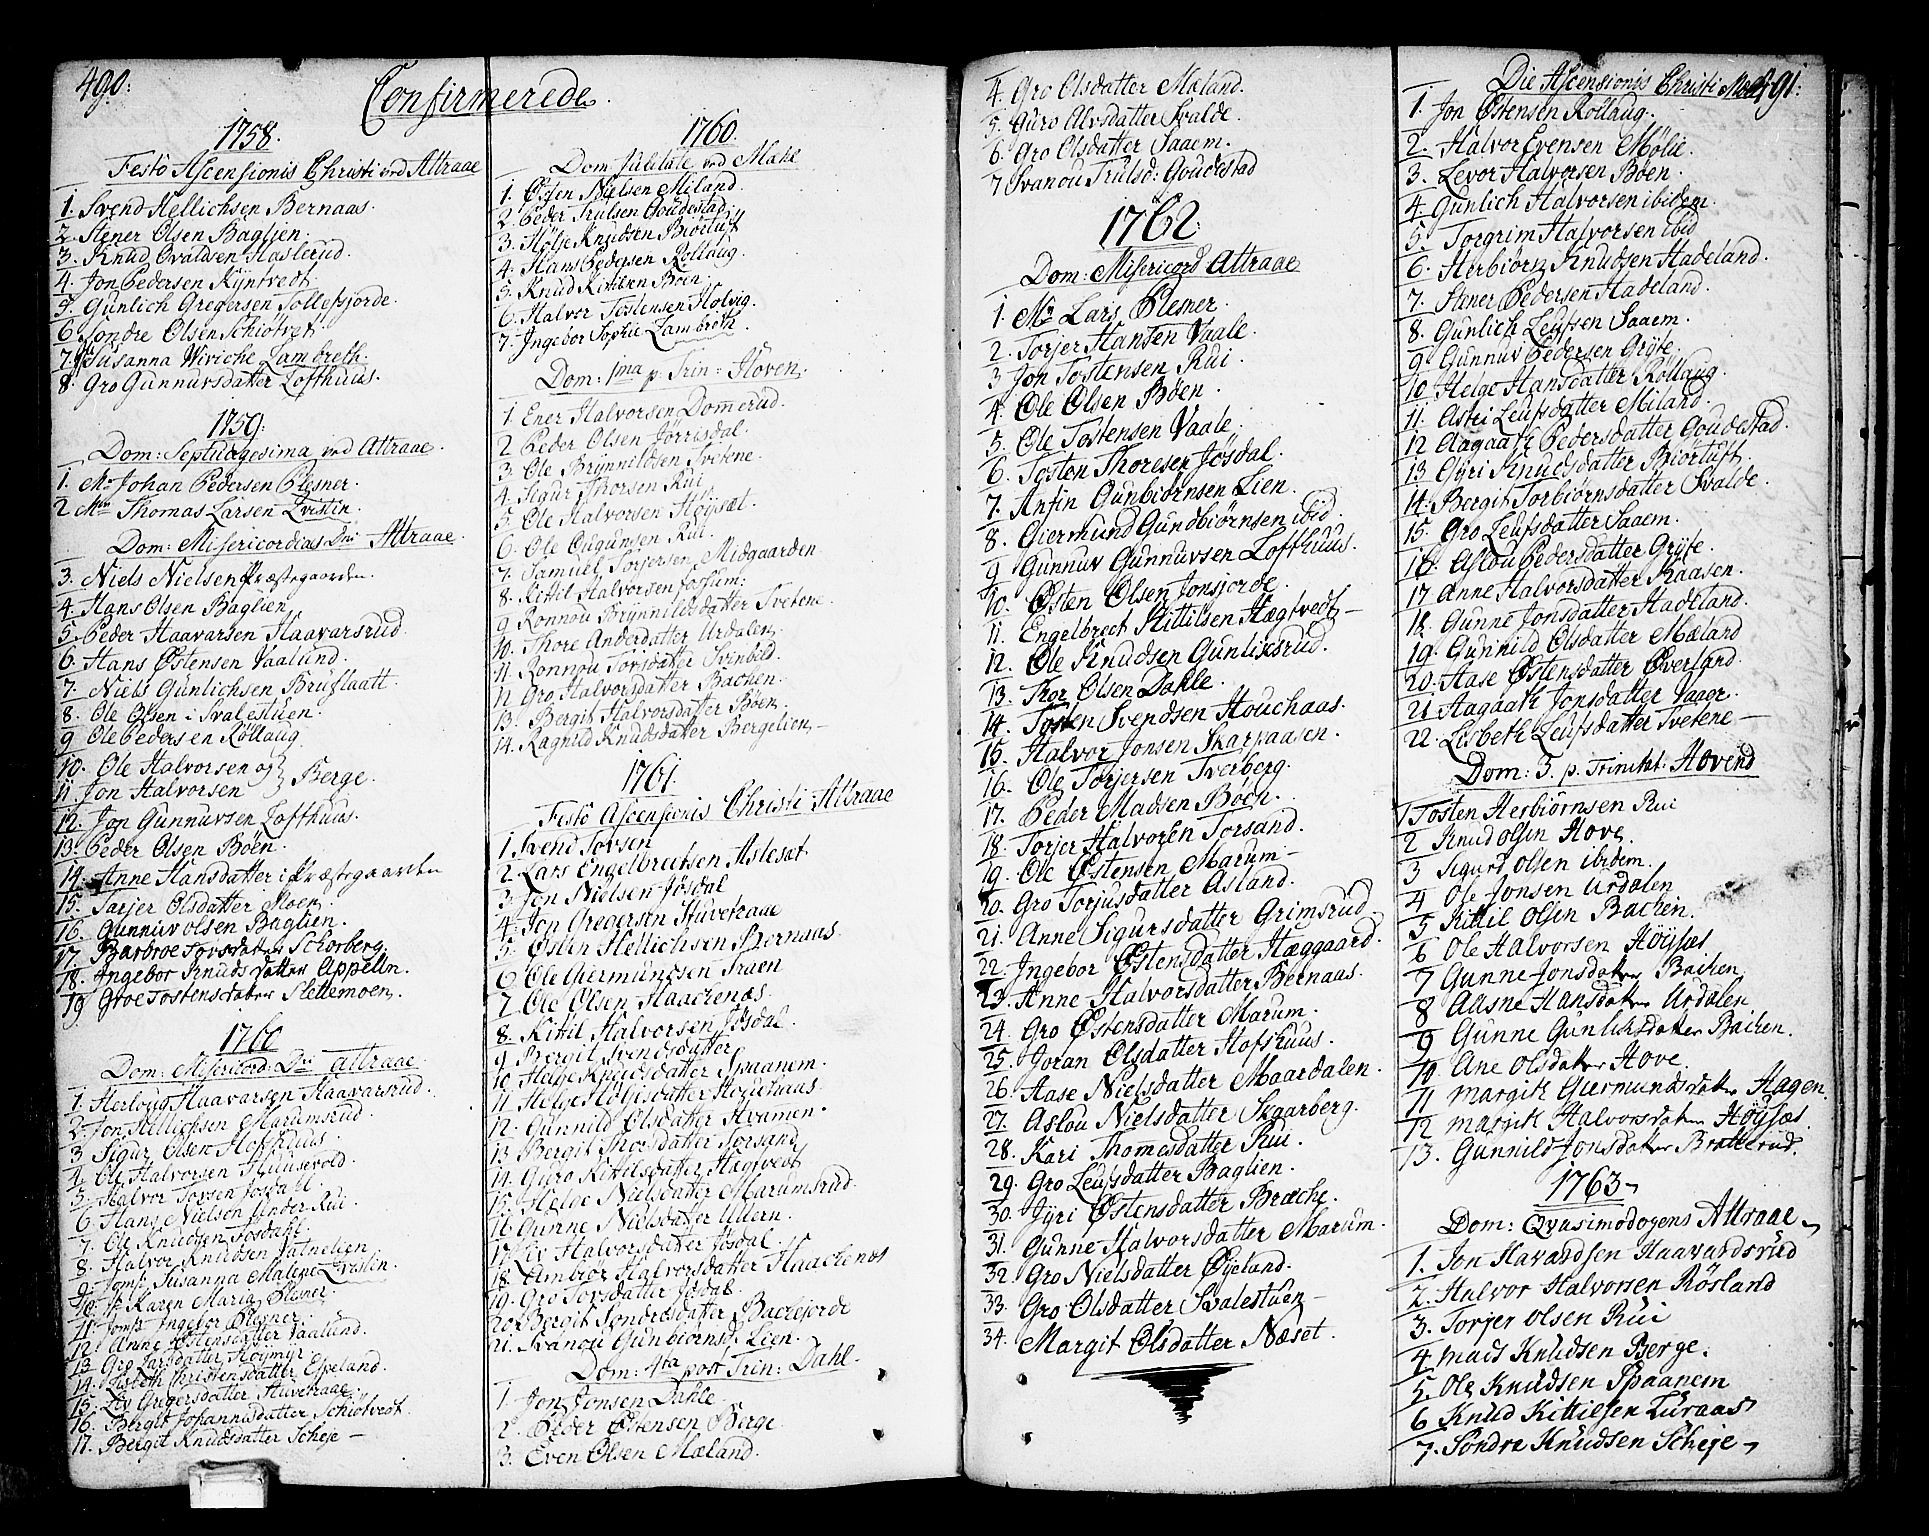 490.
Confirmerede
1758.
Festo Ascensionis Christi ved Attraae
1. Svend Hellichsen Bernaas.
2. Stener Olsen Baglien.
3. Knud Ovaldsen Haslerud.
4. Jon Pedersen Kyntvedt
5. Gunlich Gregersen Tollefsjorde.
6. Søndre Olsen Schiotvet
7. Susanna Wiviche Lambreth.
8. Gro Gunnuvsdatter Lofthuus.
1759.
Dom: Septuagesima ved Attraae.
1. Mr. Johan Pedersen Plesner.
2. Mr. Thomas Larsen Qvistin.
Dom: Misericordias Dni Attraae.
3. Niels Nielsen Præstegaarden.
4. Hans Olsen Baglien.
5. Peder Haavarsen Haavarsrud.
6. Hans Østensen Vaalund.
7. Niels Gunlichsen Bruflaatt.
8. Ole Olsen i Svalestuen.
9. Ole Pedersen Rollaug.
10. Ole Halvorsen og
11. Jon Halvorsen } Berge.
12. Jon Gunnuvsen Lofthuus.
13. Peder Olsen Böen.
14. Anne Hansdatter i Præstegaarden
15. Tarjer Olsdatter Moen.
16. Gunnuv Olsen Baglien.
17. Barbroe Torsdatter Schorberg.
18. Ingebor Knudsdatter Appelln.
19. Groe Tostensdatter Slettemoen.
1760
Dom: Misericord: Dni Attraae.
1. Herloug Haavarsen Haavarsrud.
2. Jon Hellichsen Marumsrud.
3. Sigur Olsen Hofshuus.
4. Ole Halvorsen
5. Halvor Torsen Josdahl.
6. Hans Nielson under Rui.
7. Ole Knudsen Josdahl.
8. Halvor Knudsen
9. Jomf. Susanna Malene Qvistin.
10. Jf. Karen Maria Plesner.
11. Jomf. Ingebor Plesner.
12. Anne Østensdatter Vaalund.
13. Gro Larsdatter Høymyr.
14. Lisbeth Christensdatter Espeland.
15. Liv Gregersdatter Huvetraae.
16. Bergit Johannisdatter Schiotvedt.
17. Bergit Knudsdatter Scheje
1760.
Dom Jubilate ved Mahl
1. Østen Nielsen Miland.
2. Peder Trulsen Goudestad.
3. Holje Knudsen Biortuft
4. Hans Pedersen Rollaug.
5. Knud Kittilsen Böen.
6. Halvor Tostensen Holvig.
7. Ingebor Sophie Lambreth.
Dom: 1ma p: Trin: Hoven.
1. Ener Halvorsen Dommerud.
2. Peder Olsen Jörrisdal.
3. Ole Brynnildsen Svetene.
4. Sigur Thorsen Rui.
5. Ole Halvorsen Höysæt.
6. Ole Ougunsen Rui.
7. Samuel Torjersen Midgaarden.
8. Kittil Halvorsen Fossum:
9. Ronnou Brynnildsdatter Svetene.
10. Thore Andersdatter Urdalen.
11. Ronnou Torsdatter Svinbild.
12. Gro Halvorsdatter Bachen.
13. Bergit Halvorsdatter Böen.
14. Ragnild Knudsdatter Bergelien
1761.
Festo Ascensionis Christi Attraae
1. Svend Torsen
2. Lars Engelbrectsen Aslesæt.
3. Jon Nielsen Jösdal.
4. Jon Gregersen Huvetraae
5. Østen Hellichsen Bernaas.
6. Ole Giermundsen Traen
7. Ole Olsen Haachenæs.
8. Kittil Halvorsen Jösdal.
9. Bergit Svendsdatter
10. Helge Knudsdatter Spaanem.
11. Helge Holjesdatter Houchaas
12. Gunnild Olsdatter Hvamen.
13. Bergit Thorsdatter Torsand
14. Guro Kittilsdatter Hægtvedt
15. Helge Nielsdatter Marumsrud.
16. Gunne Nielsdatter Ullern.
17. Liv Halvorsdatter Jösdal.
18. Ambior Halvorsdatter Haachenæs
19. Gro Torsdatter Jösdal.
20. Bergit Sondresdatter Bachejorde
21. Svanou Gunbiornsd. Lien.
Dom: 4ta post Trin: Dahl.
1. Jon Jonsen Dahle.
2. Peder Østensen Berge.
3. Even Olsen Mæland.
4. Gro Olsdatter Mæland.
5. Guro Alvsdatter Svalde.
6. Gro Olsdatter Saaem.
7. Svanou Trulsd: Goudestad
1762.
Dom: Misericord Attraae
1. Mr Lars Plesner.
2. Torjer Hansen Vaale.
3. Jon Tostensen Rui.
4. Ole Olsen Böen.
5. Ole Tostensen Vaale.
6. Tosten Thoresen Jösdal.
7. Anfin Gunbiørnsen Lien.
8. Giermund Gundbiörnsen ibid.
9. Gunnuv Gunnuvsen Lofthuus.
10. Østen Olsen Jonsjorde.
11. Engelbrect Kittilsen Hægtvedt
12. Ole Knudsen Gunlixsrud.
13. Thor Olsen Dahle.
14. Tosten Svendsen Houchaas.
15. Halvor Jonsen Skarpaasen.
16. Ole Torjersen Tverberg.
17. Peder Madsen Böen.
18. Torjer Halvorsen Torsand.
19. Ole Østensen Marum
20. Gro Torjusdatter Asland.
21. Anne Sigursdatter Grimsrud.
22. Ingebor Østensdatter Hæggaard.
23. Anne Halvorsdatter Bernaas.
24. Gro Østensdatter Marum.
25. Joran Olsdatter Hofshuus.
26. Aase Nielsdatter Maardalen.
27. Aslou Nielsdatter Skaarberg.
28. Kari Thomesdatter Rui.
29. Gro Leufsdatter Baglien.
30. Jyri Østensdatter Bræche.
31. Gunne Halvorsdatter Marum.
32. Gro Nielsdatter Øyeland.
33. Gro Olsdatter Svalestuen
34. Margit Olsdatter Næset.
Die Ascensionis Christi 491:
1. Jon Østensen Rollaug.
2. Halvor Evensen Mölie.
3. Levor Halvorsen Böen.
4. Gunlich Halvorsen ibidem.
5. Torgrim Halvorsen ibid.
6. Herbiörn Knudsen Hadeland.
7. Stener Pedersen Hadeland.
8. Gunlich Leufsen Saaem.
9. Gunnuv Pedersen Gryte.
10. Helge Hansdatter Rollaug.
11. Astri Leufsdatter Miland.
12. Aagaath Pedersdatter Goudestad.
13. Giyri Knudsdatter Biörtuft.
14. Bergit Torbiörnsdatter Svalde.
15. Gro Leufsdatter Saaem.
16. Aslou Pedersdatter Gryte.
17. Anne Halvorsdatter Kaasen.
18. Gunne Jonsdatter Hadeland.
19. Gunnild Olsdatter Mæland
20. Aase Østensdatter Øverland.
21. Aagaath Jonsdatter Vaaer.
22. Lisbeth Leufsdatter Tvetene
Dom: 3. p. Trinitat: Hovend
1 Tosten Herbiörnsen Rui
2 Knud Olsen Hove
3 Sigurd Olsen ibidem.
4 Ole Jonsen Urdalen
5 Kittil Olsen Bachen.
6 Ole Halvorsen Höysæt
7 Gunne Jonsdatter Bachen
8 Aasne Hansdatter Urdalen
9 Gunne Gunlichsdatter Bachen.
10 Ane Olsdatter Hove
11 Margith Giermundsdatter Hagen.
12 Margith Halvorsdatter Höysæt.
13. Gunnild Jonsdatter Bratterud.
1763
Dom: Qvasimodogens Attraae
1. Jon Havardsen Haavardsrud
2. Halvor Halvorsen Rösland
3. Torjer Olsen Rui
4 Mads Knudsen Berge.
5. Ole Knudsen Spaanem
6 Knud Kittilsen Luraas
7. Söndre Knudsen Scheje